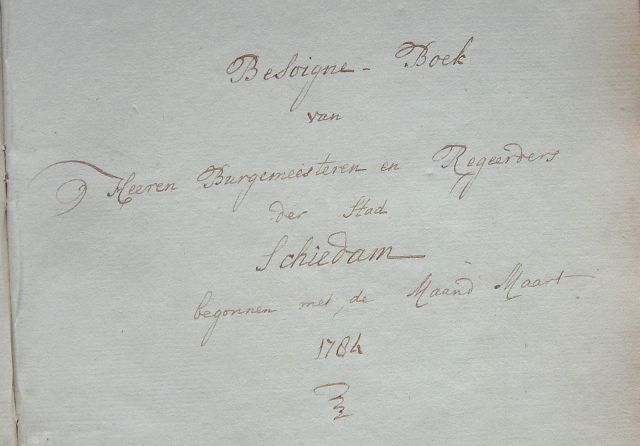 Besoigne - Boek
van
D' Heeren Burgemeesteren en Regeerders
der Stad
Schiedam
begonnen met de Maand Maart
1784